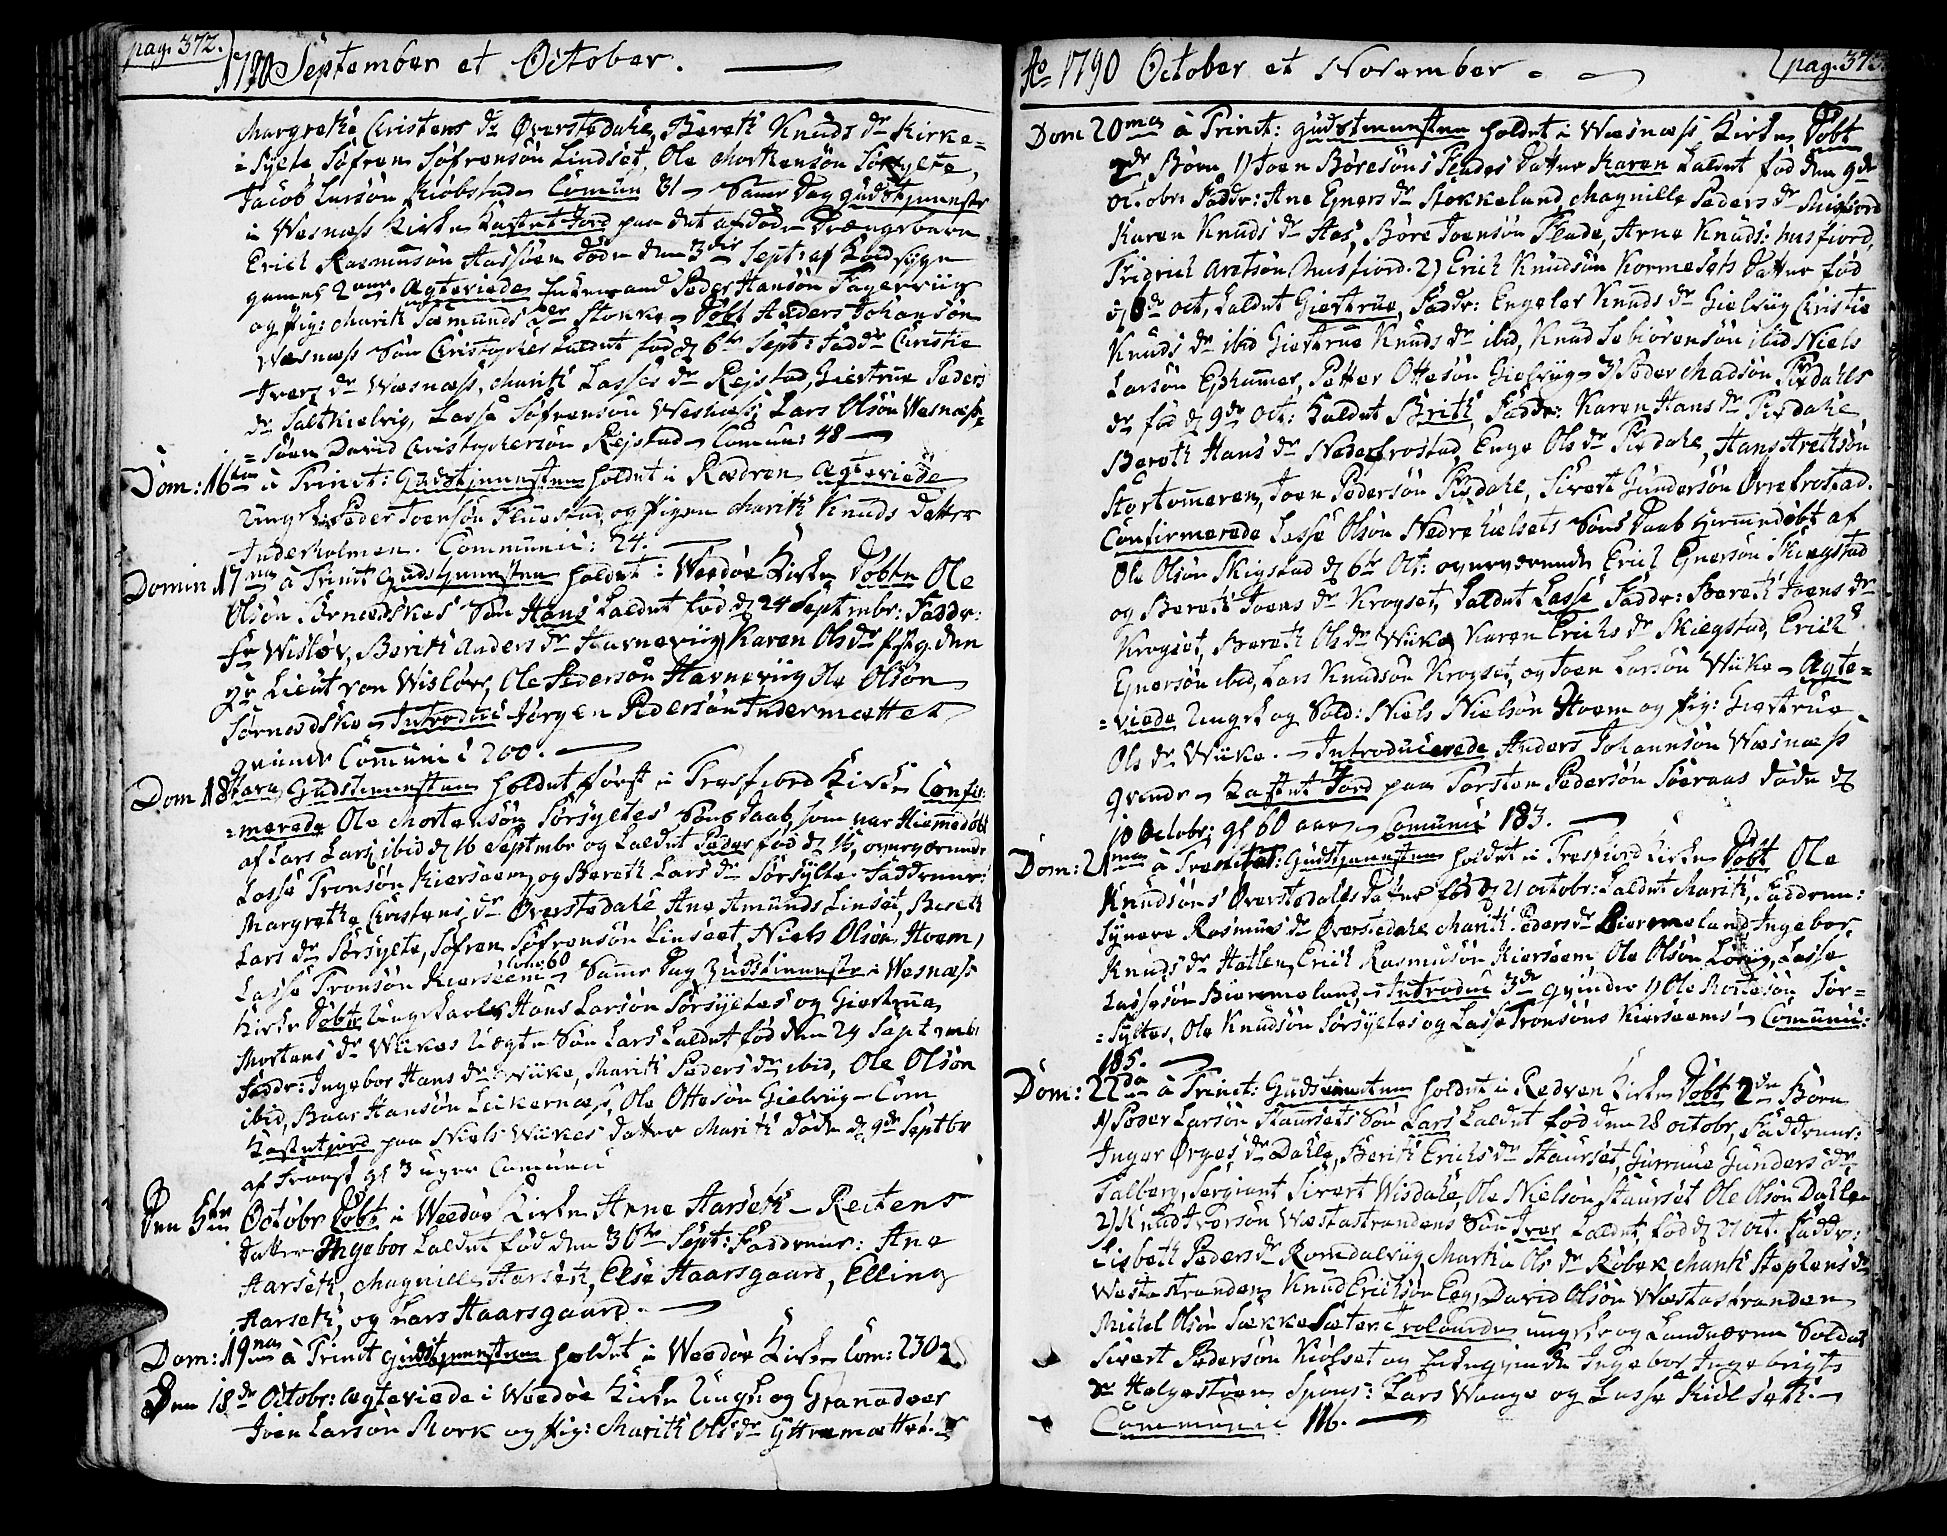 pag. 372.
1790 September et October.
Margrethe Christens dr Øverstedahle, Bereth Knuds dr Kirke=
=Sylte Søfren Søfrensøn Lindset, Ole Mortensøn Sørsylte,
Jacob Larsøn Kiøbstad Comun 31 Samme Dag Gudstjeneste
i Wesnæss Kirke Kastet Jord paa det afdøde Drængebarn
Erich Rasmussøn døde den 3die Sept: af Koldsyge
gamel 2 aar. Ægteviede Enkemand Peder Hansøn Fagerviig
og Pig: Marith Sæmunds dr Stokke Døbt Anders Johansøn
Wæsnæss Søn Christopher kaldet fød d 6te Sept: Faddr Christie
Ivers dr Wæsnæss, Marith Lasses dr Rejstad, Giertrue Peders
dr Saltkielvig, Lasse Søfrensøn Wesnæss, Lars Olsøn Wesnæss,
=søen David Christophersøn Rejstad Comun: 48
Dom: 16ten à Trinit: Gudstjenesten holdet i Rædven Ægteviede
Ungk: Peder Joensøn Fluestad og Pigen Marith Knuds Datter
Inderholmen. Communic: 24.
Domin 17ma à Trinit Gudstjenesten holdet i Weedøe Kirke Døbt Ole
Olsøn Sørnedskes Søn Hans kaldet fød d 24 Septembr: Faddr:
Fr Wisløv, Berith Anders dr Havneviig Karen Ols dr P: Pig. den
gr Lieut von Wisløv, Ole Pedersøn Havneviig Ole Olsøn
Sørnedske Introduc Jørgen Pedersøn Indermættet
qvinde Communic 200.
Dom 18tava Gudstienesten holdet først i Tresfiord Kirke Confir
=merede Ole Mortensøn Sørsyltes Søns Daab, som var Hiemmedøbt
af Lars Lars: ibid d 16 Septembr og kaldet Peder fød d 15, overværende
Lasse Tronsøn Kierseem og Bereth Lars dr Sørsylte Faddrene:
Margrethe Christens dr Øverstedahle Ane Amunds Linset, Bereth
Lars dr Sørsylte, Søfren Søfrensøn Linseet, Niels Olsøn Hoem,
Lasse Tronsøn Kierseem Com 60 Samme Dag Gudstieneste i Wesnæss
Kirke Døbt Ungkarls Hans Larsøn Sørsyltes og Giertrue
Mortens dr Wiikes Uægte Søn Lars kaldet fød den 29 Septembr
Faddr: Ingebor Hans dr Wiike, Marith Peders dr ibid, Ole Olsøn
ibid, Baar Hansøn Leikernæss, Ole Ottesøn Gielviig Com
Kastet jord paa Niels Wiikes Datter Marith døde d 9de Septbr
af gl 3 uger Comunic
Den 5te Octobr Døbt i Weedøe Kirke Arne Harseth Reitens
Datter Ingebor kaldet fød den 30te Sept: Faddrene: Ane
Harseth, Magnille Harseth, Else Haarsgaard, Elling
Harseth, og Lars Haarsgaard.
Dom: 19na à Trinit Gudstjenesten holdet i Weedøe Kirke Com: 230
Den 18de Octobr: ægteviede i Weedøe Kirke Ungk: og Granadeer
Joen Larsøn Mork og Pig: Marith Ols dr Yttremættet
Ao 1790 October et November.
pag. 373
Dom 20ma à Trinit: Gudstienesten holdet i Wæsnæss Kirke Døbt
2de Børn 1) Joen Børesøns Flades Datter Karen kaldet fød den 9de
Octobr: Faddr: Ane Eners dr Stokkeland, Magnille Peders dr Misfiord
Karen Knuds dr Aas, Børe Joensøn Flade, Arne Knuds: Misfiord,
Fridrich Aretsøn Misfiord. 2) Erich Knudsøn Kormesets Datter fød
d 8de Oct, kaldet Giertrue, Faddr: Engeler Knuds dr Gielviig Christie
Knuds dr ibid Giertrue Knuds dr ibid, Knud Sebiørensøn ibid Niels
Larsøn Ephammer, Petter Ottesøn Gielviig 3) Peder Madsøn Fixdahls
dr fød d 9de Oct: kaldet Brith, Faddr: Karen Hans dr Fixdahle
Bereth Hans dr Nederfrostad, Enge Ols dr Fixdahle, Hans Arethsøn
Stortommeren, Joen Pedersøn Fixdahle, Sivert Gundersøn Øvrefrostad.
Confirmerede Lasse Olsøn Nedrehielsets Søns Daab hiemmedøbt af
Ole Olsøn Skigstad d 6te Oct: overværende Erich Enersøn Skiegstad
og Bereth Joens dr Krogset, kaldet Lasse Faddr: Bereth Joens dr
Krogset, Bereth Ols dr Wiike, Karen Erichs dr Skiegstad, Erich
Enersøn ibid, Lars Knudsøn Krogset, og Joen Larsøn Wiike Ægte=
=viede Ungk og Sold: Niels Nielsøn Hoem og Pig: Giertrue
Ols dr Wiike. Introducerede Anders Johannsøn Wæsnæss
Qvinde Kastet Jord paa Torsten Pedersøn døde d
10 Octobr: gl 60 aar Comunic 183.
Dom: 21ma à Trinitat: Gudstjenesten holdet i Tresfiord Kirke Døbt Ole
Knudsøns Øverstedales Datter fød d 21 octobr: kaldet Marith, Faddrene:
Synøve Rasmus dr Øverstedahle Marith Peders dr Biermeland Ingebor
Knuds dr Hatlen, Erich Rasmusøn Kierseem Ole Olsøn Løviig, Lasse
Lassesøn Biermeland Introduc 3de qvinder 1) Ole Mortesøn Sør=
=Syltes, Ole Knudsøn Sørsyltes og Lasse Tronsøns Kierseems Comunic:
185.
Dom: 22da à Trinit: Gudstienesten holdet i Redven Kirke Døbt 2de Børn
1) Peder Larsøn Staursets Søn Lars kaldet fød den 28 octobr, Faddrene:
Inger Ørges dr Dahle, Berith Erichs dr Staurset, Gurrune Gunders dr
Talberg, Sergiant Sivert Wisdahle, Ole Nielsøn Staurset Ole Olsøn Dahle
2) Knud Iversøn Wæstastrandens Søn Iver kaldet, fød d 27 oct. Faddr:
Lisbeth Peders dr Romdalsviig, Marthe Ols dr Købek Marith Stephens dr
Wæstastranden Knud Erichsøn Eeg, David Olsøn Wæstastranden
Michel Olsøn Sækkesæter Trolovede ungk: og Landværn Soldat
Sivert Pedersøn Kiølset og Enkeqvinde Ingebor Ingebrigts
dr Helgestøen Spons: Lars Waage og Lasse Kidlseth.
Communic 116.